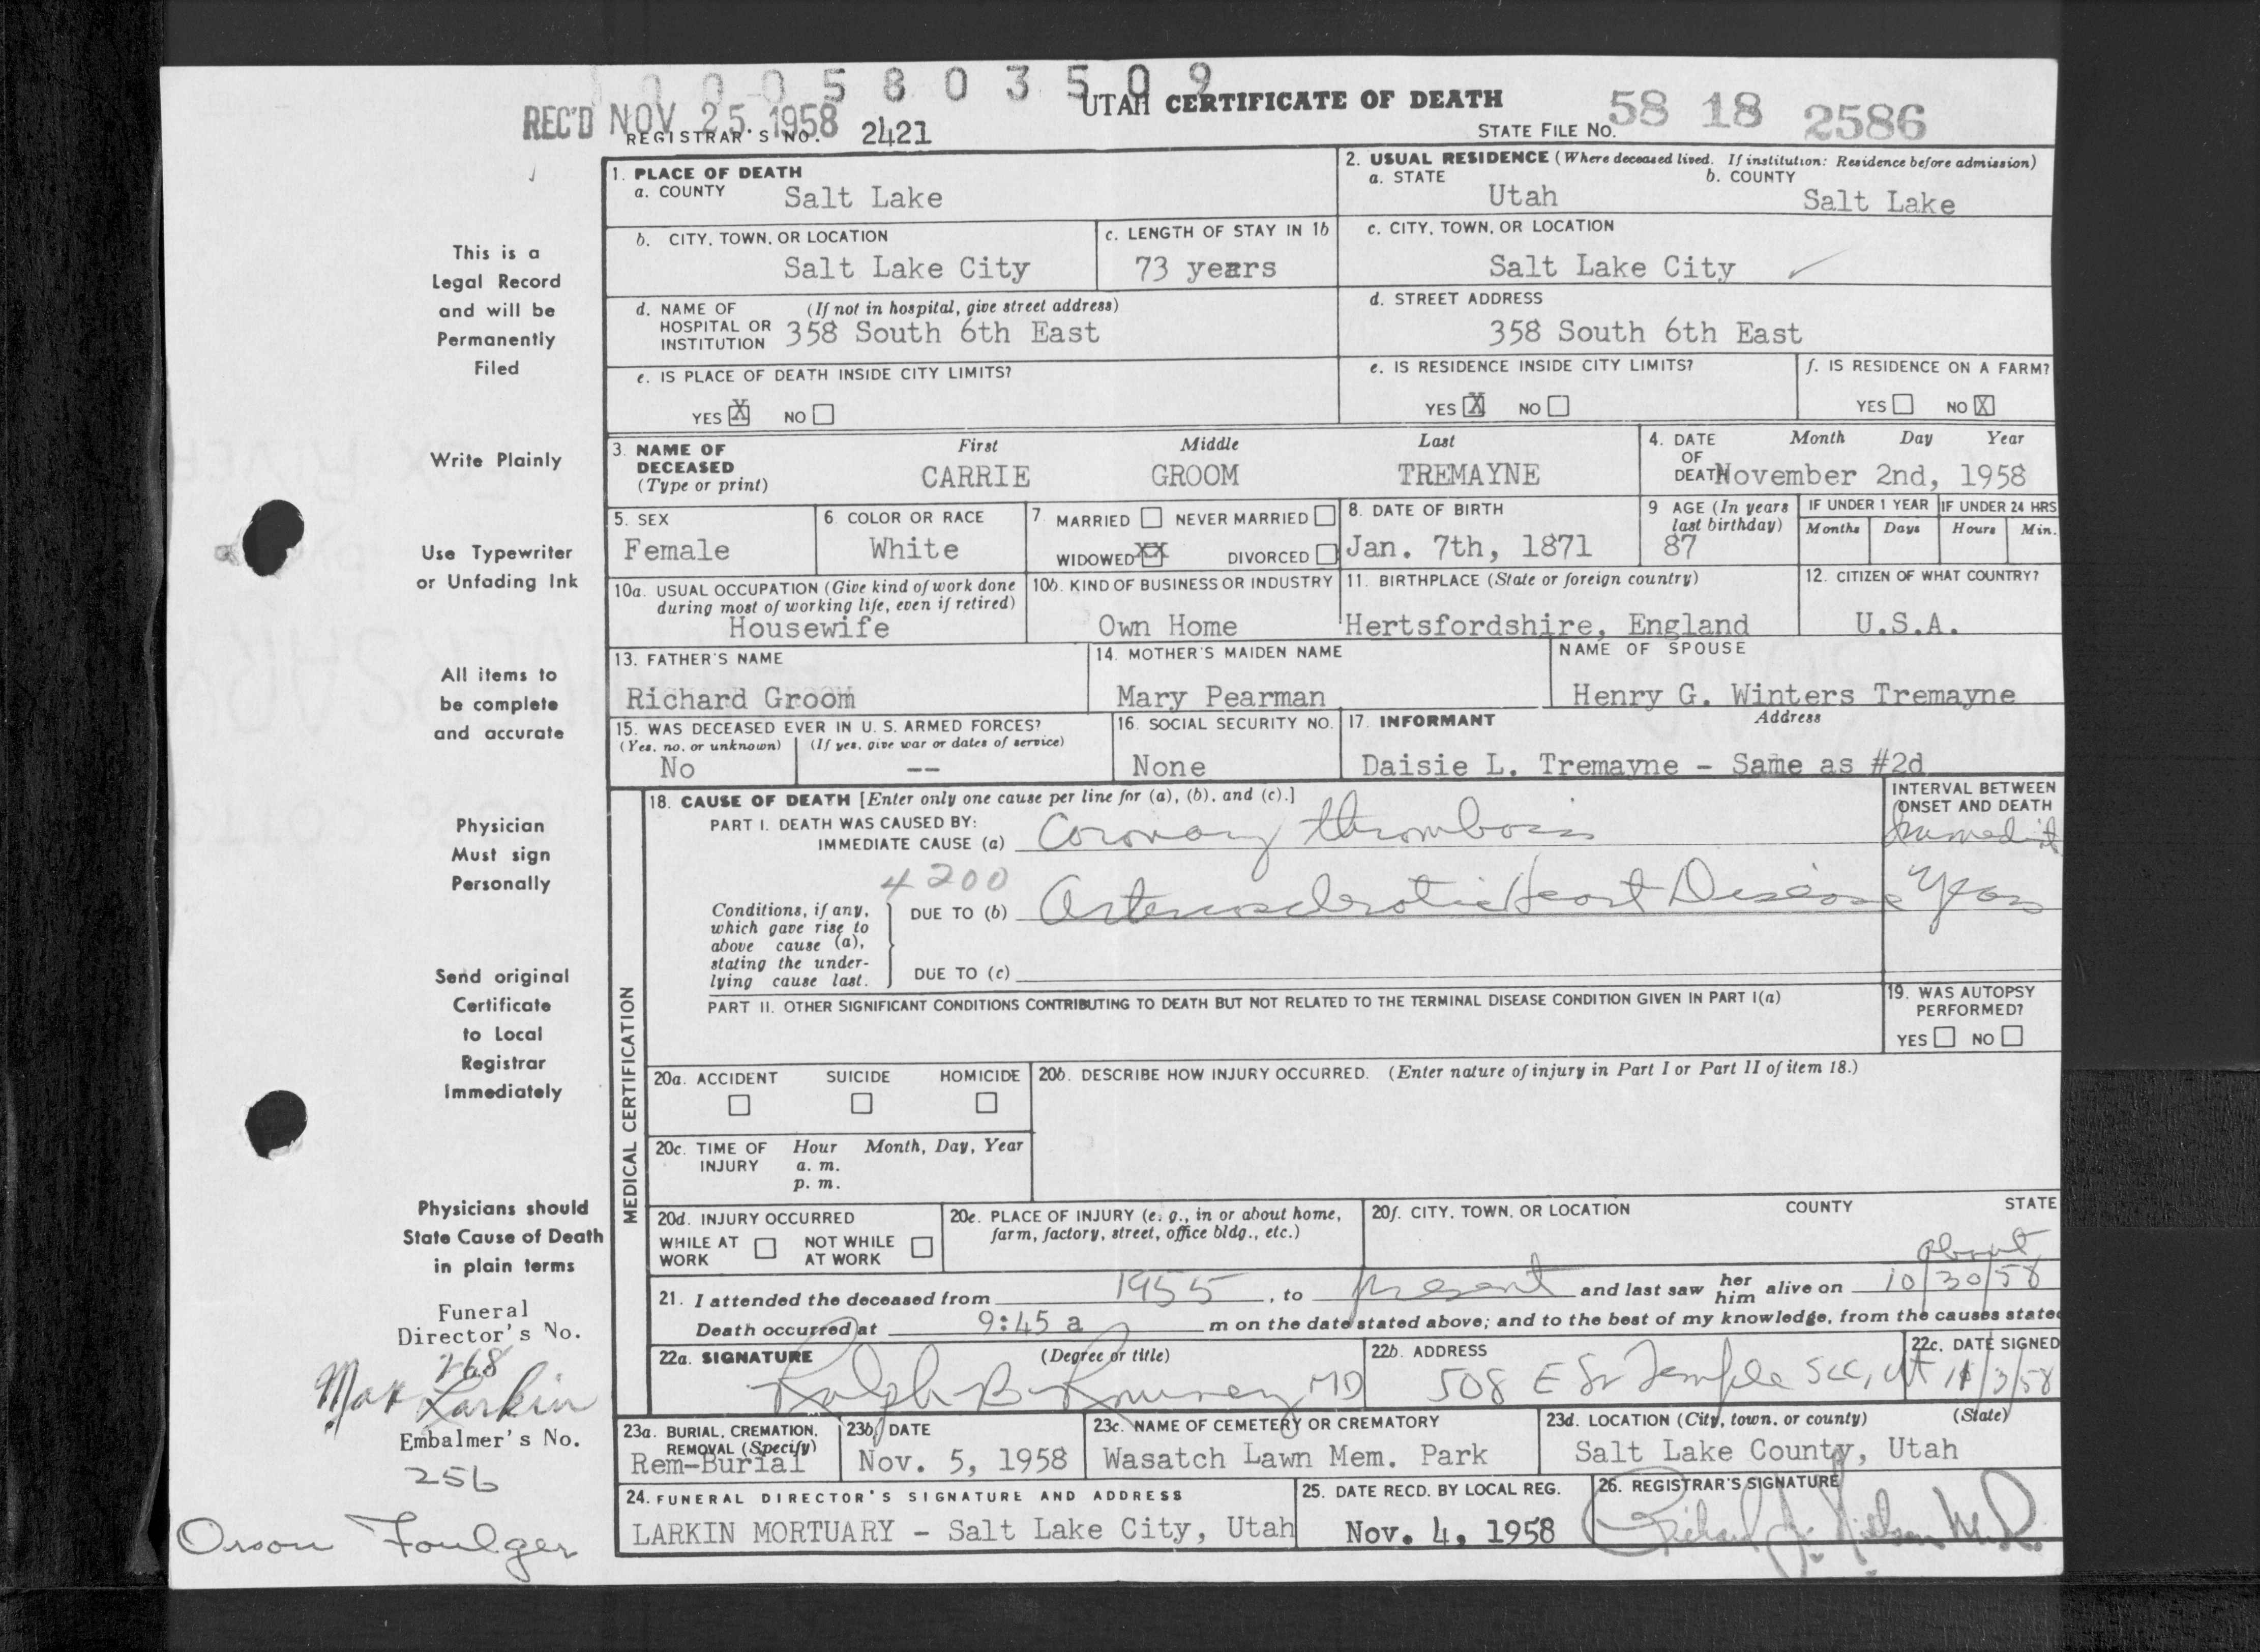 10005803509
REC'D NOV 25 1958
UTAH CERTIFICATE OF DEATH
REGISTRAR'S NO. 2421
STATE FILE NO. 58 18 2586
This is a
Legal Record
and will be
Permanently
Filed
Write Plainly
Use Typewriter
or Unfading Ink
All items to
be complete
and accurate
Physician
Must sign
Personally
Send original
Certificate
to Local
Registrar
Immediately
Physicians should
State Cause of Death
in plain terms
Funeral
Director's No.
268
Max Larkin
Embalmer's No.
256
Orson Foulger
1. PLACE OF DEATH
a. COUNTY Salt Lake
2. USUAL RESIDENCE (Where deceased lived. If institution: Residence before admission)
a. STATE Utah b. COUNTY Salt Lake
b. CITY, TOWN, OR LOCATION Salt Lake City
c. LENGTH OF STAY IN 1b 73 years
c. CITY, TOWN, OR LOCATION Salt Lake City
d. NAME OF HOSPITAL OR INSTITUTION (If not in hospital, give street address) 358 South 6th East
d. STREET ADDRESS 358 South 6th East
e. IS PLACE OF DEATH INSIDE CITY LIMITS?
YES X NO
e. IS RESIDENCE INSIDE CITY LIMITS?
YES X NO
f. IS RESIDENCE ON A FARM?
YES NO X
3. NAME OF DECEASED (Type or print)
First Middle Last
CARRIE GROOM TREMAYNE
4. DATE OF DEATH Month Day Year
November 2nd, 1958
5. SEX Female
6. COLOR OR RACE White
7. MARRIED NEVER MARRIED
WIDOWED XX DIVORCED
8. DATE OF BIRTH Jan. 7th, 1871
9 AGE (In years last birthday) 87
IF UNDER 1 YEAR Months Days
IF UNDER 24 HRS Hours Min.
10a. USUAL OCCUPATION (Give kind of work done during most of working life, even if retired)
Housewife
10b. KIND OF BUSINESS OR INDUSTRY
Own Home
11. BIRTHPLACE (State or foreign country)
Hertsfordshire, England
12. CITIZEN OF WHAT COUNTRY?
U.S.A.
13. FATHER'S NAME
Richard Groom
14. MOTHER'S MAIDEN NAME
Mary Pearman
NAME OF SPOUSE
Henry G. Winters Tremayne
15. WAS DECEASED EVER IN U. S. ARMED FORCES?
(Yes, no, or unknown) (If yes, give war or dates of service)
No --
16. SOCIAL SECURITY NO.
None
17. INFORMANT Address
Daisie L. Tremayne - Same as #2d
MEDICAL CERTIFICATION
18. CAUSE OF DEATH [Enter only one cause per line for (a), (b), and (c).]
INTERVAL BETWEEN ONSET AND DEATH
PART I. DEATH WAS CAUSED BY:
IMMEDIATE CAUSE (a) Coronary thrombosis
4200
Conditions, if any, which gave rise to above cause (a), stating the underlying cause last.
DUE TO (b) Arteriosclerotic Heart Disease Years
DUE TO (c)
PART II. OTHER SIGNIFICANT CONDITIONS CONTRIBUTING TO DEATH BUT NOT RELATED TO THE TERMINAL DISEASE CONDITION GIVEN IN PART I(a)
19. WAS AUTOPSY PERFORMED?
YES NO
20a. ACCIDENT SUICIDE HOMICIDE
20b. DESCRIBE HOW INJURY OCCURRED. (Enter nature of injury in Part I or Part II of item 18.)
20c. TIME OF INJURY Hour Month, Day, Year
a. m.
p. m.
20d. INJURY OCCURRED
WHILE AT WORK NOT WHILE AT WORK
20e. PLACE OF INJURY (e. g., in or about home, farm, factory, street, office bldg., etc.)
20f. CITY, TOWN, OR LOCATION COUNTY STATE
about
21. I attended the deceased from 1955, to present and last saw her him alive on 10/30/58
Death occurred at 9:45 a m on the date stated above; and to the best of my knowledge, from the causes stated
22a. SIGNATURE (Degree or title)
Ralph B MD
22b. ADDRESS
508 E So Temple SLC, Ut
22c. DATE SIGNED
11/3/58
23a. BURIAL, CREMATION, REMOVAL (Specify)
Rem-Burial
23b. DATE
Nov. 5, 1958
23c. NAME OF CEMETERY OR CREMATORY
Wasatch Lawn Mem. Park
23d. LOCATION (City, town, or county) (State)
Salt Lake County, Utah
24. FUNERAL DIRECTOR'S SIGNATURE AND ADDRESS
LARKIN MORTUARY - Salt Lake City, Utah
25. DATE RECD. BY LOCAL REG.
Nov. 4, 1958
26. REGISTRAR'S SIGNATURE
Richard J. Nielsen M.D.